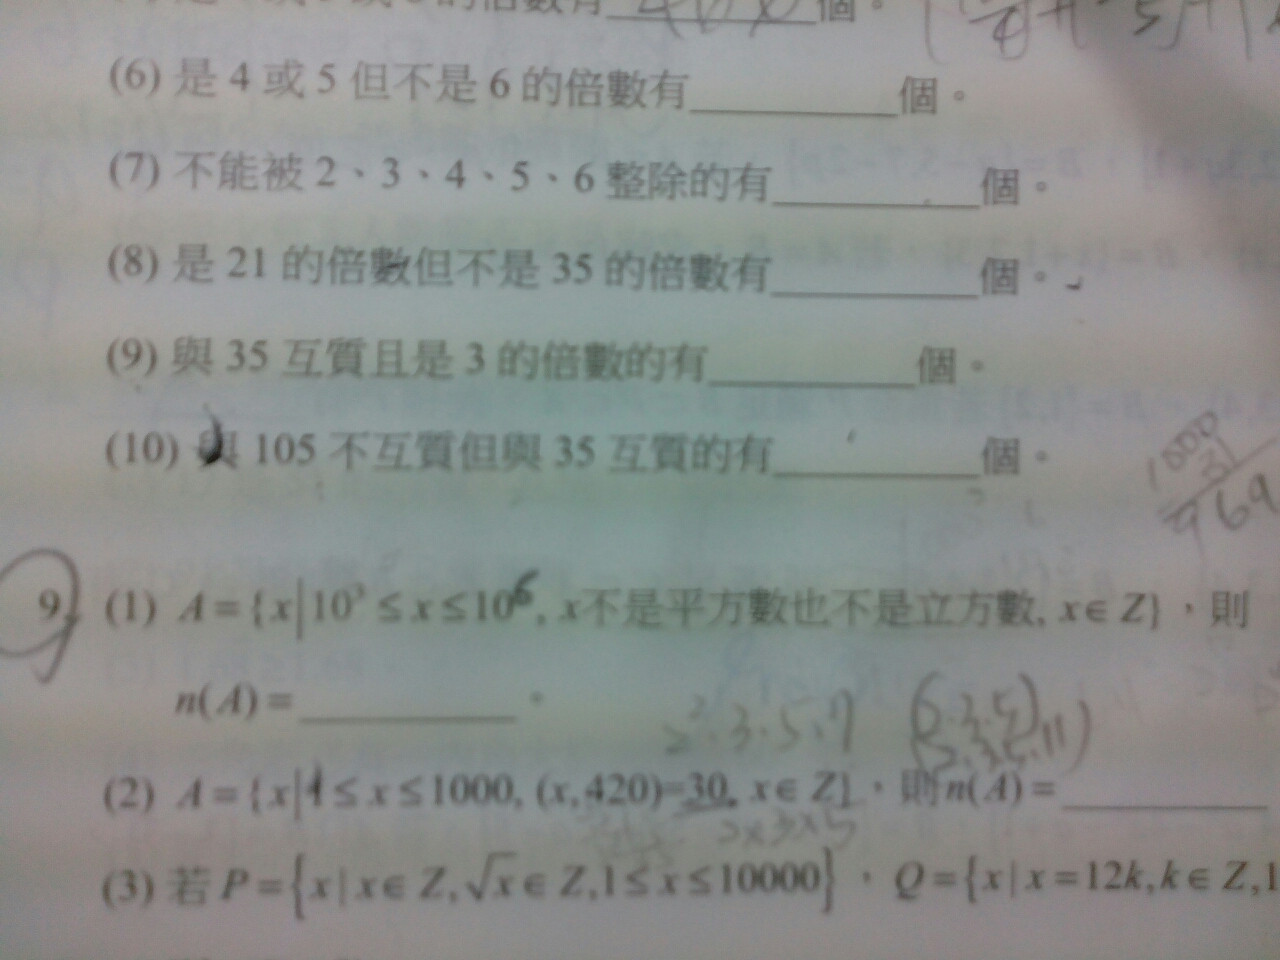 的倍數有 400 個。
(6) 是 4 或 5 但不是 6 的倍數有________個。
(7) 不能被 2、3、4、5、6 整除的有________個。
(8) 是 21 的倍數但不是 35 的倍數有________個。
(9) 與 35 互質且是 3 的倍數的有________個。
(10) 與 105 不互質但與 35 互質的有________個。
1000
31
969
9. (1) A={x|10³≤x≤10⁶, x不是平方數也不是立方數, x∈Z}，則
n(A)=________。
2²·3·5·7
(2) A={x|1≤x≤1000, (x,420)=30, x∈Z}，則n(A)=________
2×3×5
(3) 若 P={x|x∈Z,√x∈Z,1≤x≤10000}，Q={x|x=12k,k∈Z,1